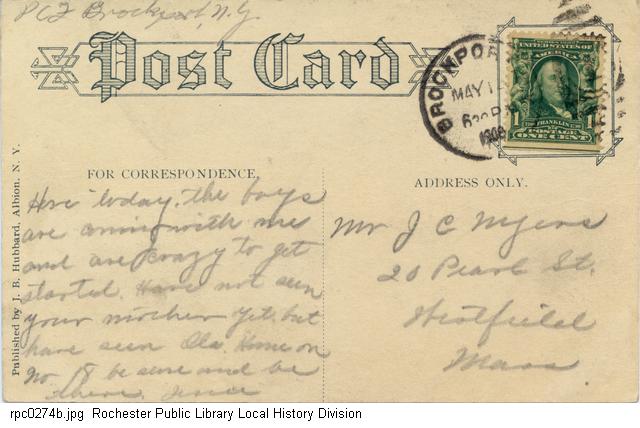 PC2 Brockport, N.Y.
Post Card
BROCKPOR
MAY 1
630 P
1908
UNITED STATES OF
AMERICA
1
FRANKLIN
POSTAGE
ONE CENT
FOR CORRESPONDENCE.
Here today. the boys
are coming with me
and are crazy to get
started. Have not seen
your mother yet. but
have seen Ola. Home on
No. 18 be sure and be
there. Jessie
ADDRESS ONLY.
Mr J C Myers
20 Pearl St.
Westfield
Mass
Published by J. B. Hubbard, Albion, N. Y.
rpc0274b.jpg Rochester Public Library Local History Division